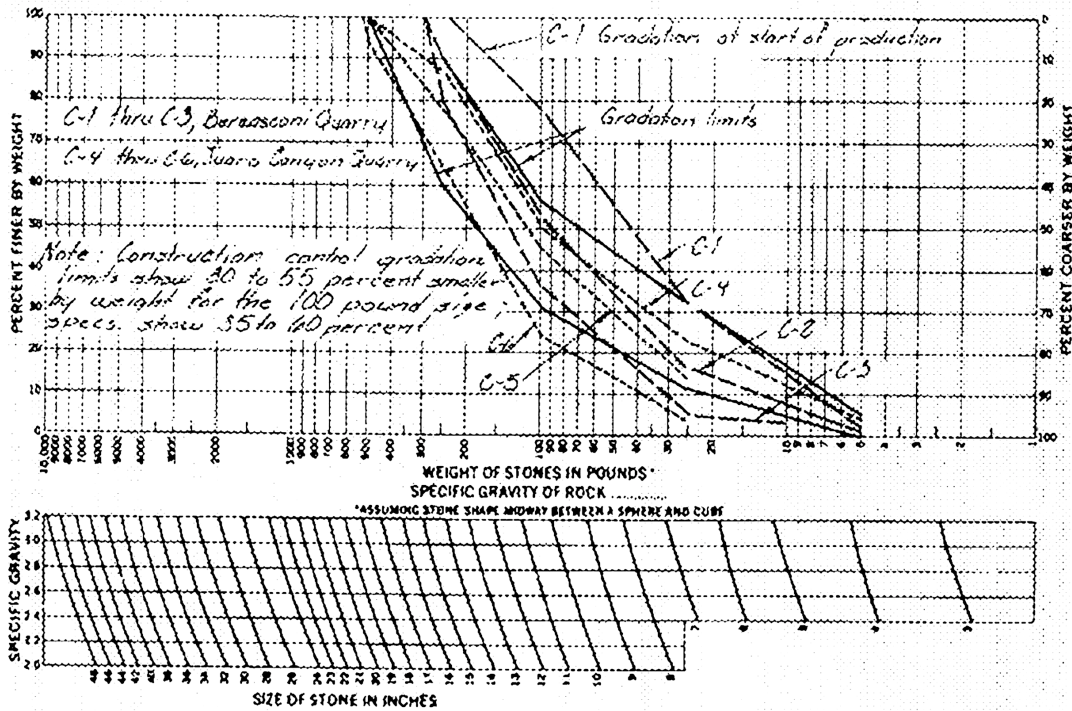 C-1 Gradation at start of production
C-1 thru C-3, Bernasconi Quarry
Gradation limits
C-4 thru C-6, Juaro Canyon Quarry
Note: Construction control gradation
limits show 30 to 55 percent smaller
by weight for the 100 pound size,
specs. show 35 to 60 percent
C-1
C-4
C-2
C-6
C-5
C-3
PERCENT FINER BY WEIGHT
100
90
80
70
60
50
40
30
20
10
0
PERCENT COARSER BY WEIGHT
0
10
20
30
40
60
90
100
10,000 9000 8000 7000 6000 5000 4000 3000 2000 1000 500 400 300 200 100 90 80 70 60 50 40 30 20 10 9 8 7 6 5 4 3 2 1
WEIGHT OF STONES IN POUNDS*
SPECIFIC GRAVITY OF ROCK ............
*ASSUMING STONE SHAPE MIDWAY BETWEEN A SPHERE AND CUBE
SPECIFIC GRAVITY
3.2
3.0
2.8
2.6
2.4
2.2
2.0
7 6 5 4 3
48 46 44 42 40 38 36 34 32 30 28 26 24 23 22 21 20 19 18 17 16 15 14 13 12 11 10 9 8
SIZE OF STONE IN INCHES